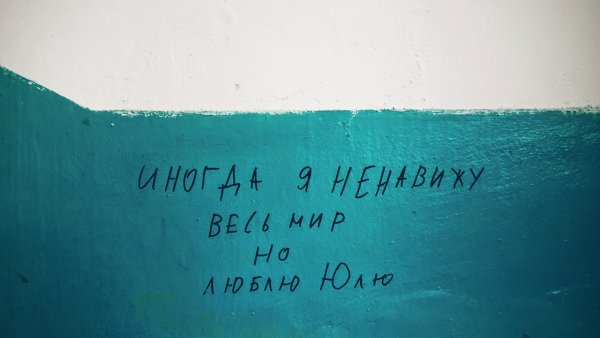 ИНОГДА Я НЕНАВИЖУ
ВЕСЬ МИР
НО
ЛЮБЛЮ Юлю